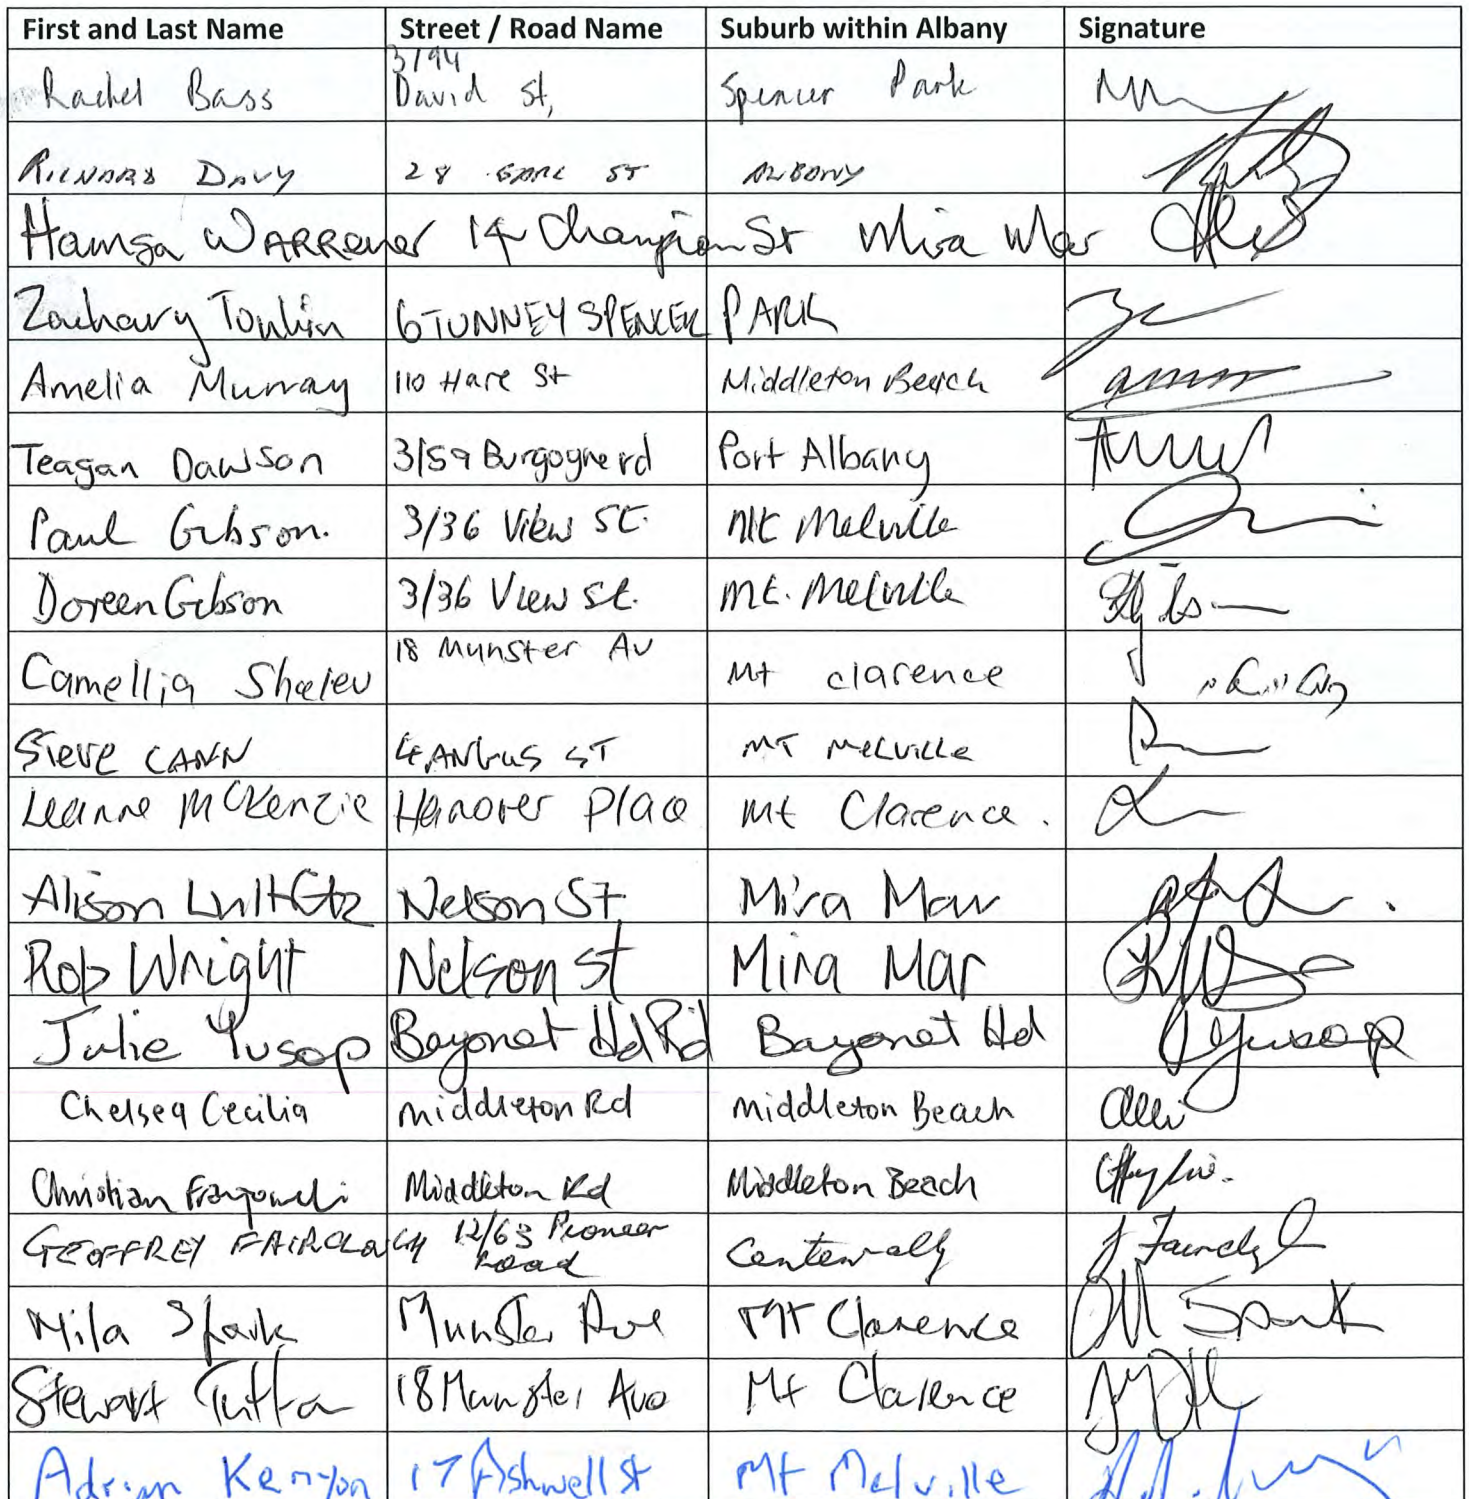 First and Last Name Street / Road Name Suburb within Albany Signature
Rachel Bass 3/94 David St, Spencer Park
RICHARD DAVY 28 EARL ST ALBANY
Hamsa WARRener 14 Champion St Mira Mar
Zachary Tomlin 6 TUNNEY SPENCER PARK
Amelia Murray 110 Hare St Middleton Beach
Teagan Dawson 3/59 Burgoyne rd Port Albany
Paul Gibson. 3/36 View St. Mt Melville
Doreen Gibson 3/36 View St. Mt. Melville
Camellia 18 Munster Av Mt clarence
Steve CANN 4 ANGUS ST MT MELVILLE
Leanne McKenzie Hanover Place Mt Clarence.
Alison Nelson St Mira Mar
Rob Wright Nelson St Mira Mar
Julie Yusop Bayonet Hd Rd Bayonet Hd Yusop
Chelsea Cecilia middleton Rd middleton Beach
Christian Middleton Rd Middleton Beach
GEOFFREY FAIRCLOUGH 12/63 Pioneer Road
Mila Munster Ave Mt Clarence
Stewart 18 Munster Ave Mt Clarence
Adrian Kenyon 17 Ashwell St Mt Melville